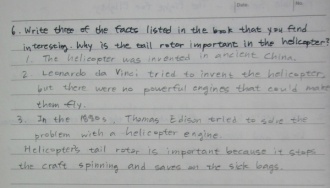 Date: No.
6. Write three of the facts listed in the book that you find
interesting. Why is the tail rotor important in the helicopter?
1. The helicopter was invented in ancient China.
2. Leonardo da Vinci tried to invent the helicopter,
but there were no powerful engines that could make
them fly.
3. In the 1880s, Thomas Edison tried to solve the
problem with a helicopter engine.
Helicopter's tail rotor is important because it stops
the craft spinning and saves on the sick bags.